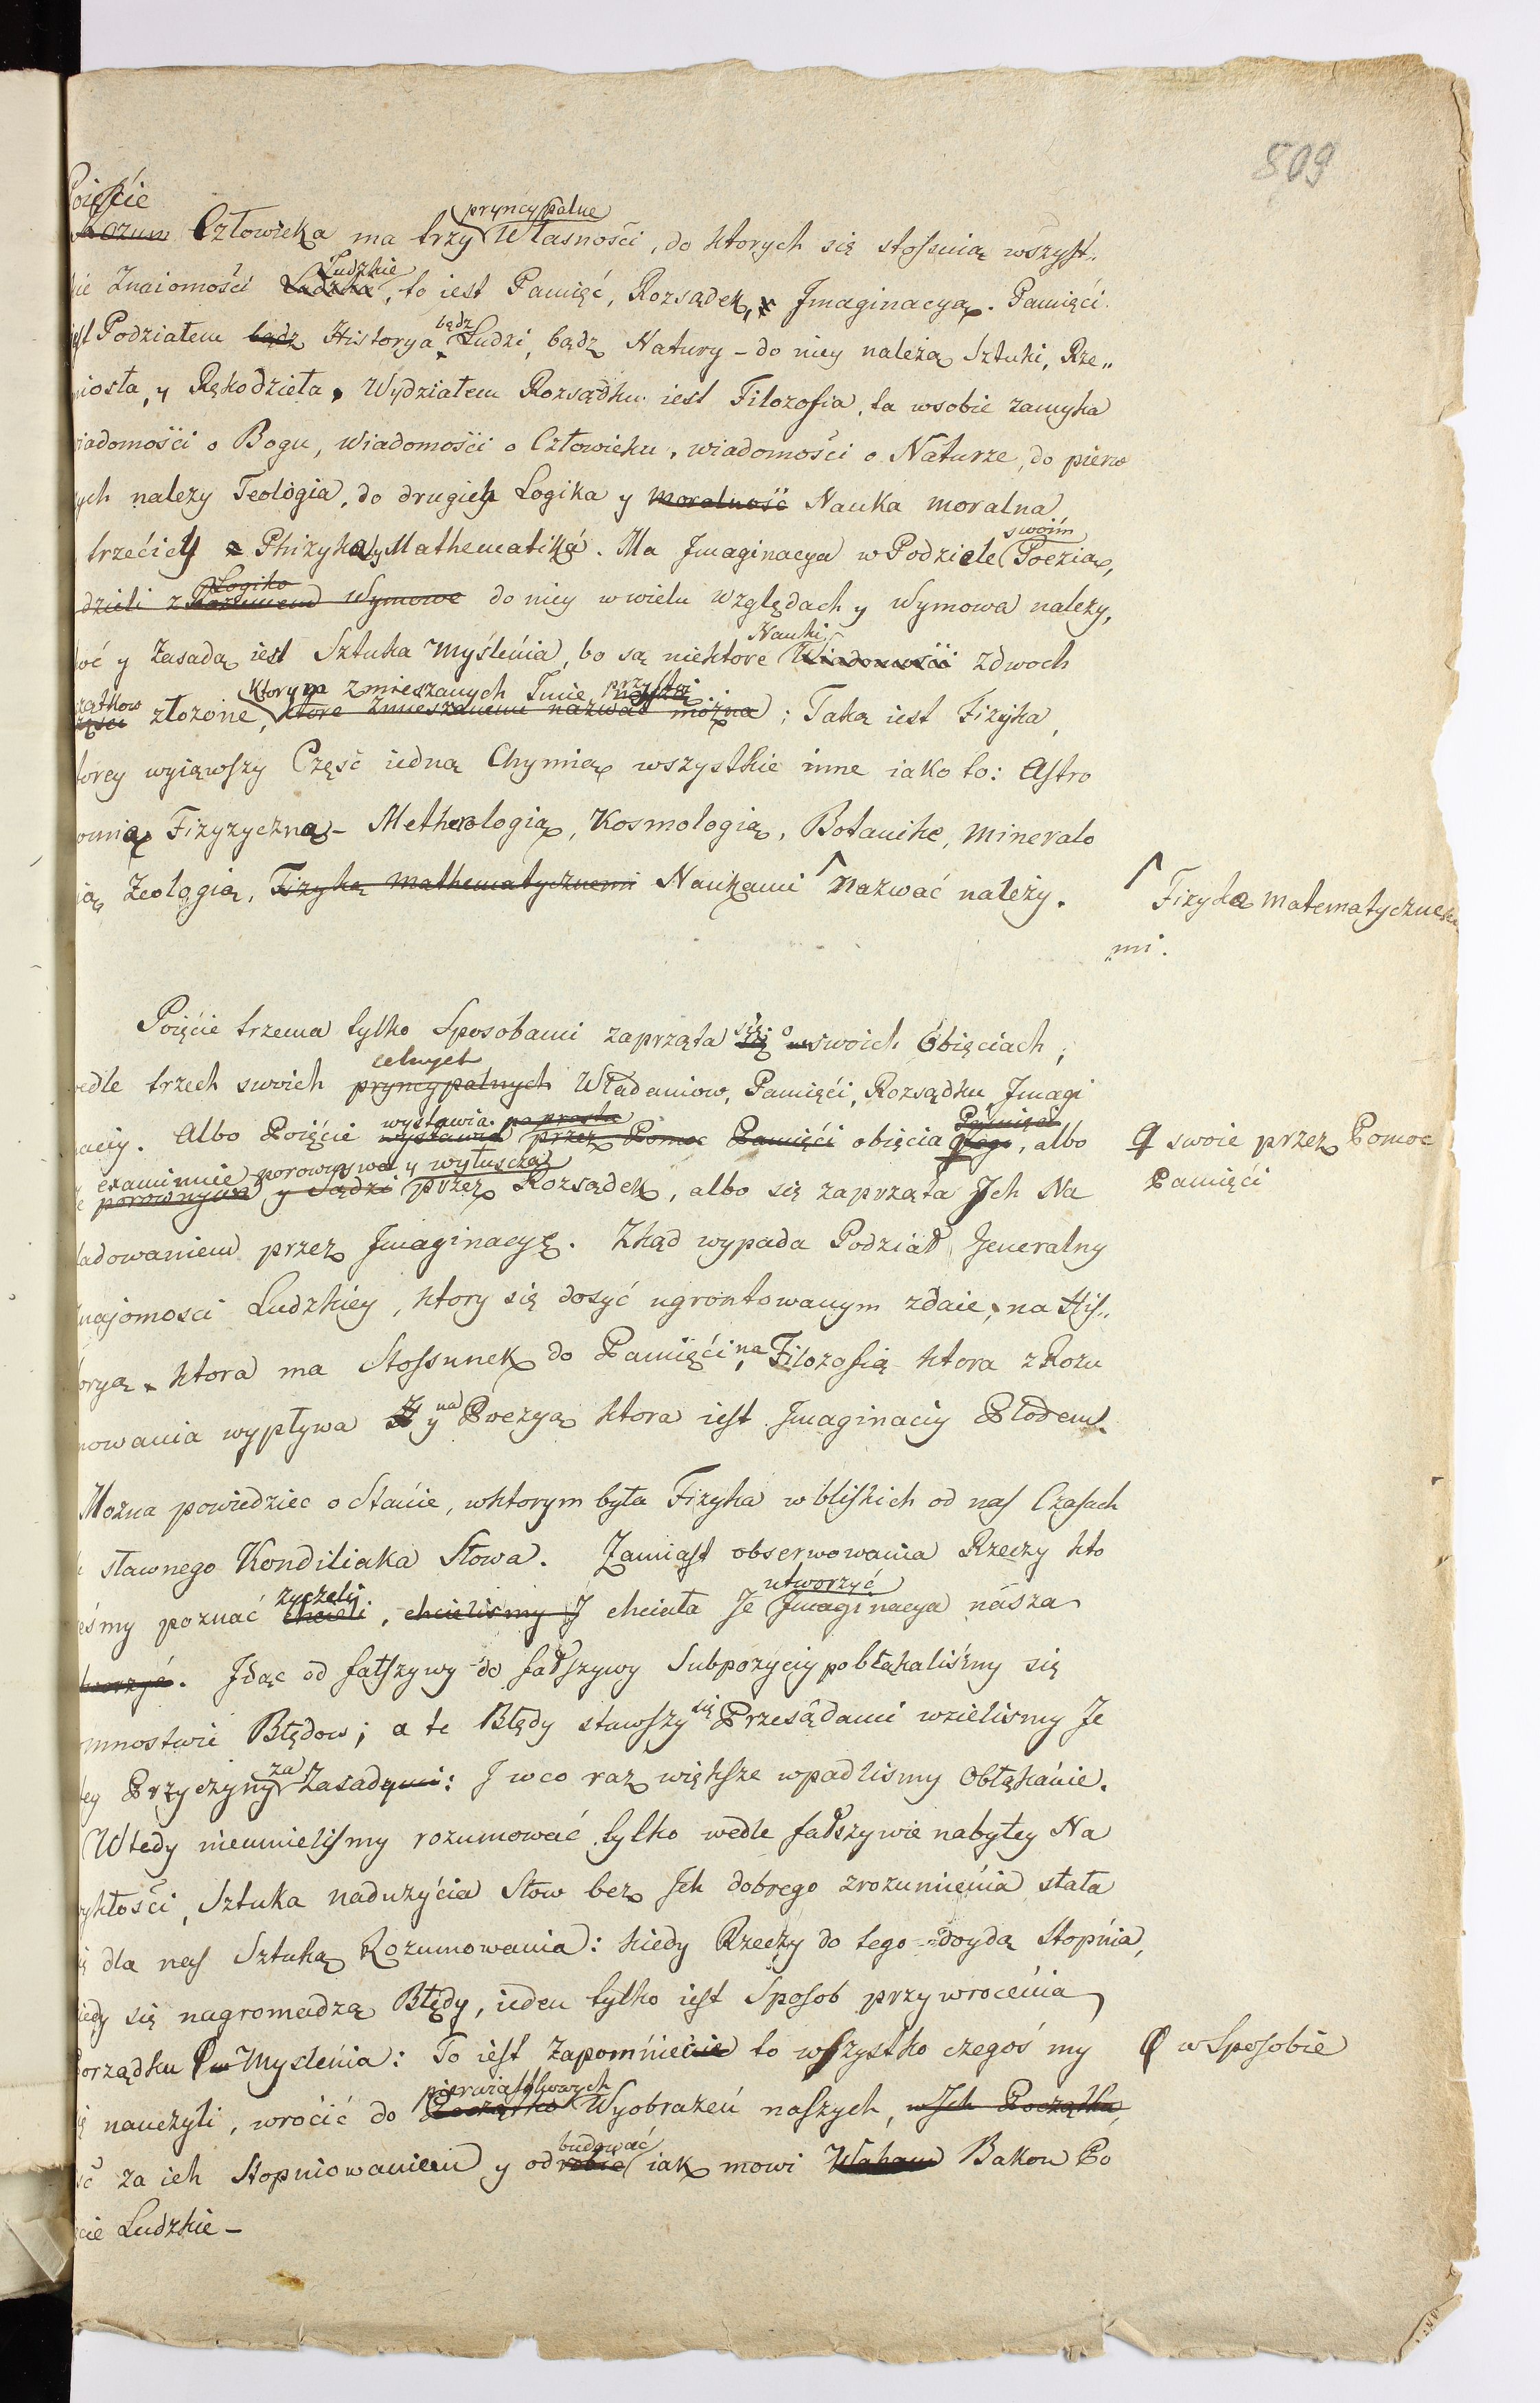 809
Poięćie
Rozum Człowieka ma trzy pryncypalne Własności, do ktorych się stosuią wszyst„
kie Znaiomości Ludzka Ludzkie, to iest Pamięć, Rozsądek, Jmaginacya. Pamięći
iest Podziałem bądz Historya bądz Ludzi, bądz Natury – do niey należą Sztuki, Rze„
miosła, y Rękodzieła. Wydziałem Rozsądku iest Filozofia, ta wsobie zamyka
wiadomości o Bogu, Wiadomości o Człowieku, wiadomości o Naturze, do pierw
ych należy Teologia, do drugich Logika y moralność Nauka moralna
trzećich Phizyka y Mathematika. Ma Jmaginacya w Podziele swoim Poezią,
dzieli z Rozumem Logiko Wymowe do niey w wielu Względach y Wymowa należy,
oć y Zasadą iest Sztuka Myślenia, bo są niektore Wiadomości Nauki zdwoch
zątkow złożone, które zmieszanemi nazwać można ktorym zmieszanych Imie przystoi; Taką iest Fizyka,
torey wyiąwszy Część iedną Chymią wszystkie inne iako to: Astro
omią Fizyzyczną – Metherologią, Kosmologią, Botanike, Mineralo
ią, Zeologią, Fizyką Mathematycznemi Naukami ^ Nazwać należy.
^ Fizyko matematyczne
mi.
Poięćie trzema tylko Sposobami zaprząta się o swoich Obięciach,
edle trzech swoich pryncypalnych celnych Władaniow, Pamięći, Rozsądku, Jmagi
naciy. Albo Poięćie wystawia wystawia poprostu przez Pomoc Pamięći obięcia, albo
swoie przez Pomoc
Pamięći
porownywa examinuie porownywa y wyłuscza y Sądzi przez Rozsądek, albo się zaprząta Jch Na
ladowaniem przez Jmaginacyę. Zkąd wypada Podział Jeneralny
najomosci Ludzkiey, ktory się dosyć ugrontowanym zdaie, na His„
oryą, ktora ma Stosunek do Pamięći, na Filozofią ktora z Rozu
mowania wypływa y na Poezyą ktora iest Jmaginaciy Płodem.
Można powiedziec o Stanie, wktorym była Fizyka w bliskich od nas Czasach
sławnego Kondiliaka Słowa. Zamiast obserwowania Rzeczy kto
eśmy poznać chcieli życzeli, chcielismy J chciała Je utworzyć Jmaginacya nasza
tworzyć. Jdąc od fałszywy do fałszywy Subpozyciy pobłąkaliśmy się
omnostwie Błędow; a te Błędy stawszy się Przesądami wzielismy Je
tey Przyczyny za Zasadymi: J wco raz większe wpadlismy Obłąkanie.
Wtedy nieumielismy rozumować tylko wedle fałszywie nabytey Na
ykłości, Sztuka nadużyćia Słow bez Jch dobrego zrozumienia stała
ię dla nas Sztuką Rozumowania: kiedy Rzeczy do tego doydą Stopnia,
iedy się nagromadzą Błędy, ieden tylko iest Sposob przywrocenia
orządku w Myslenia: To iest Zapomniecie to wszystko czegoś my
w Sposobie
ię nauczyli, wrocić do Początko pierwiastkowych Wyobrażeń naszych, w Jch Początku,
ść za ich Stopniowaniem y odrobic budować iak mowi Bakon Po
ięcie Ludzkie –